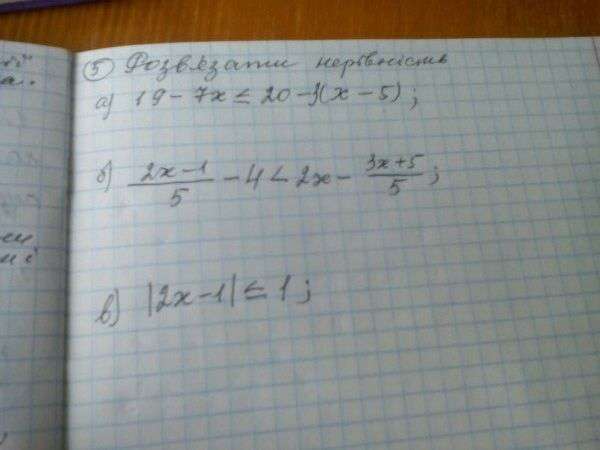 5 Розвязати нерівність
а) 19 - 7x ≤ 20 - 3(x - 5);
б) (2x - 1)/5 - 4 < 2x - (3x + 5)/5;
в) |2x - 1| ≤ 1;